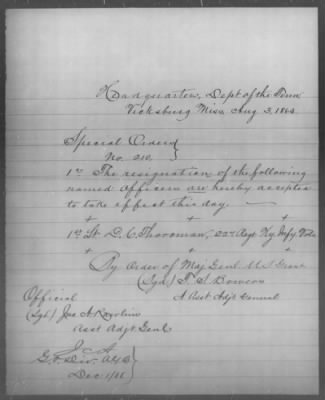 Headquarters, Dept of the Tenn
Vicksburg Miss Aug 3, 1863
Special Orders }
No. 210. }
1st The resignation of the following
named Officers are hereby accepted
to take effect this day. —
+ + + +
1st Lt. D. C. Thoroman, 22nd Regt Ky. Infy Vols
+ + + +
By Order of Maj Genl U. S. Grant
(Sgd) T. S. Bowers
A Asst Adjt General
Official
(Sgd) Jno A. Rawlins
Asst Adjt Genl
Div.
Dec 1/88